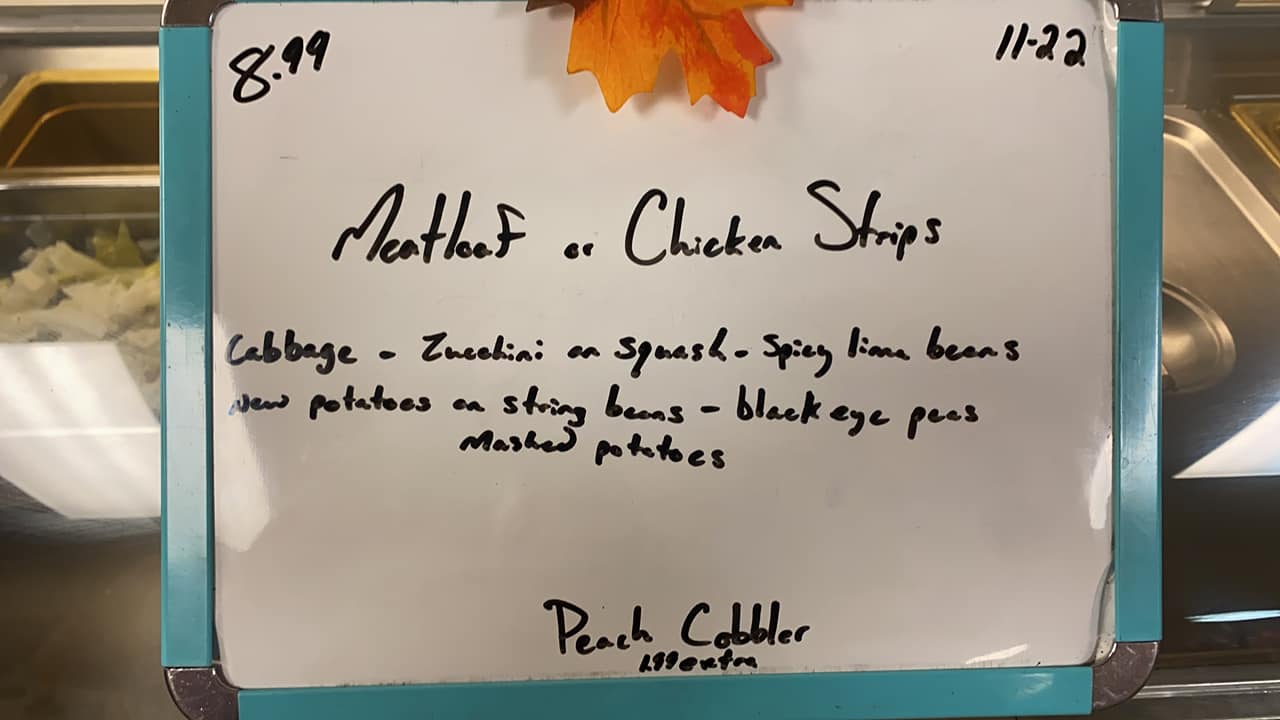 8.99 11-22
Meatloaf or Chicken Strips
Cabbage - Zucchini an squash - Spicy lima beans
New potatoes an string beans - black eye peas
Mashed potatoes
Peach Cobbler
1.99 extra